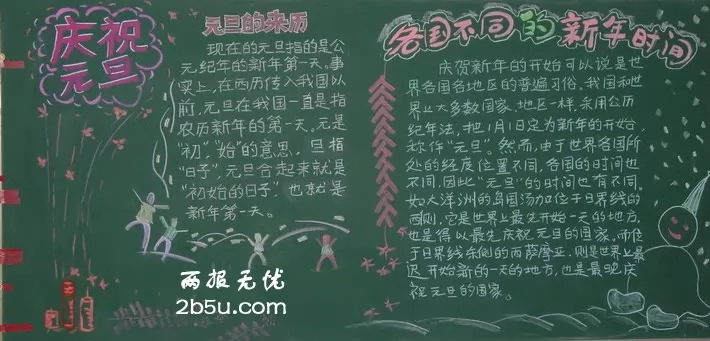 庆祝
元旦
元旦的来历
现在的元旦指的是公
元纪年的新年第一天。事
实上,在西历传入我国以
前,元旦在我国一直是指
农历新年的第一天。元是
“初”,“始”的意思,旦指
“日子”,元旦合起来就是
“初始的日子”,也就是
新年第一天。
各国不同的新年时间
庆贺新年的开始可以说是世
界各国各地区的普遍习俗。我国和世
界上大多数国家、地区一样,采用公历
纪年法,把1月1日定为新年的开始,
称作“元旦”。然而,由于世界各国所
处的经度位置不同,各国的时间也
不同,因此“元旦”的时间也有不同。
如大洋洲的岛国汤加位于日界线的
西侧,它是世界上最先开始一天的地方,
也是得以最先庆祝元旦的国家。而位
于日界线东侧的西萨摩亚,则是世界上最
迟开始新的一天的地方,也是最晚庆
祝元旦的国家。
两报无忧
2b5u.com